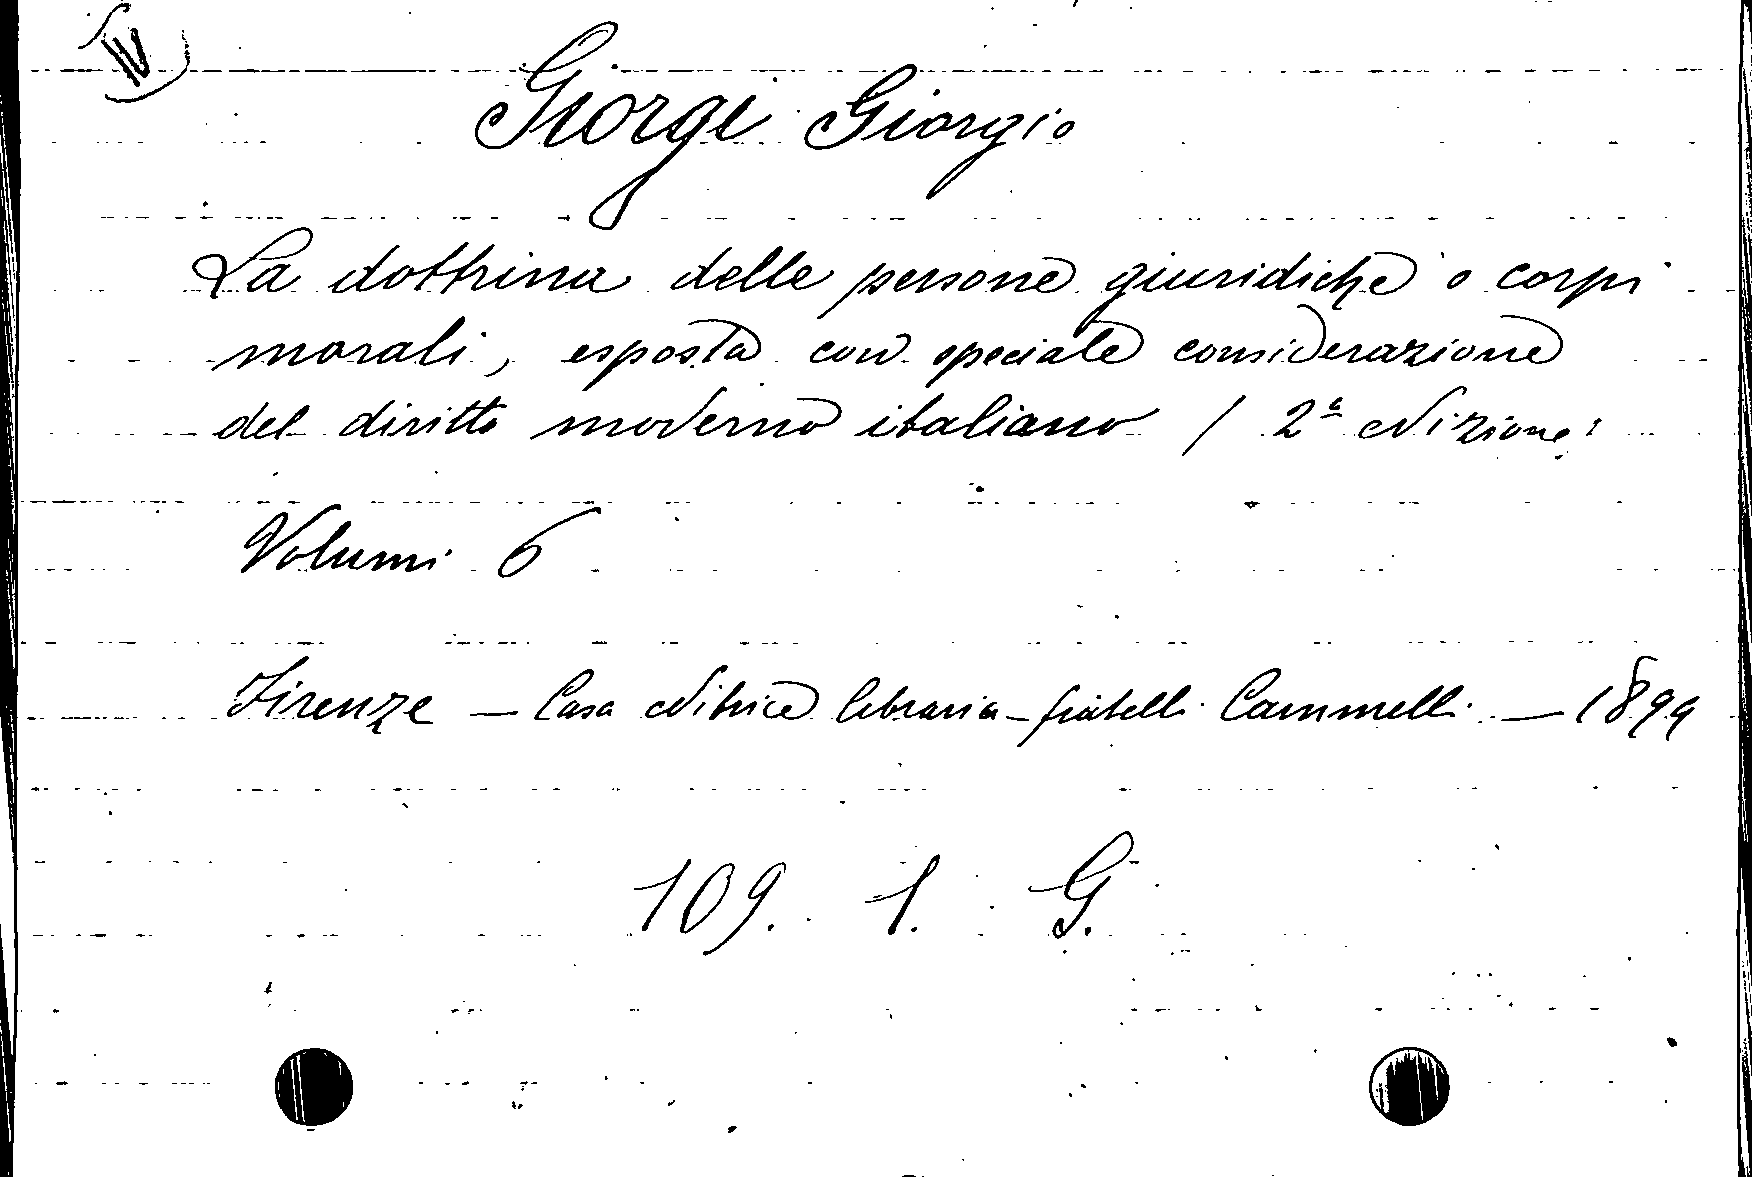 IV
Giorgi Giorgio
La dottrina delle persone giuridiche o corpi
morali, esposta con speciale considerazione
del diritto moderno italiano / 2ª edizione:
Volumi 6
Firenze – Casa editrice libraria – fratelli Cammelli – 1899
109. 1. G.